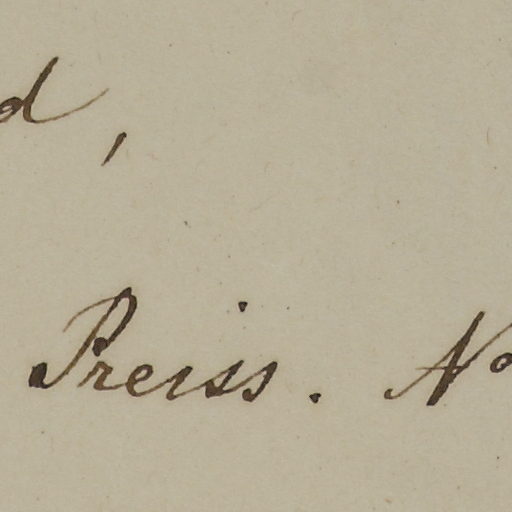 d,
Preiss. No